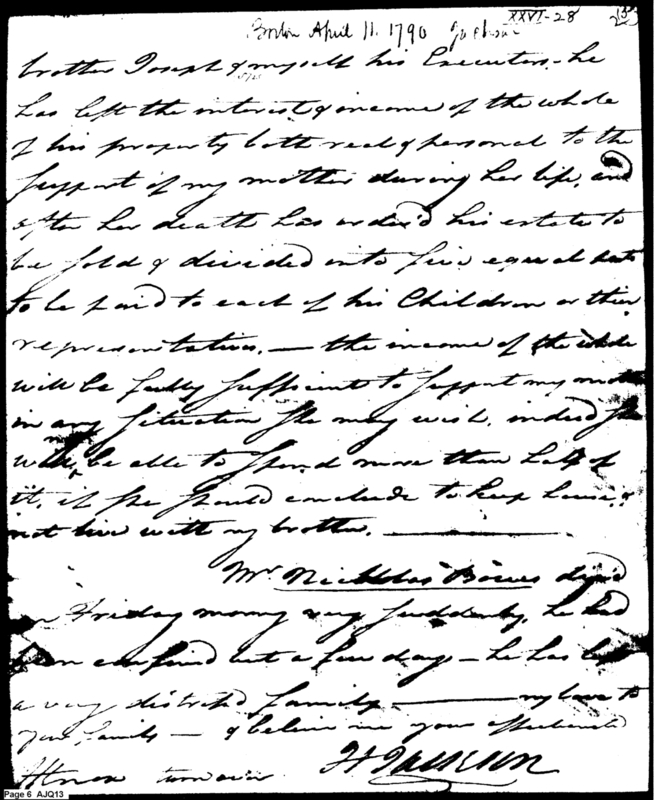 Boston April 11. 1790 Jackson
XXVI-28
brother Joseph & myself his Executors. he
has left the interest & income of the whole
of his property both real & personal to the
support of my mother during her life, and
after her death has order'd his estate to
be sold & divided into five equal parts
to be paid to each of his Children or their
representatives. — the income of the whole
will be fully sufficient to support my mother
in any situation she may wish. indeed she
will be able to spend more than half of
it, if she should conclude to keep house, &
not live with my brother. —
Mr Nickolas Bowes died
on Friday morng very suddenly, he had
been confined but a few days — he has left
a very distress'd family — my love to
your family — & believe me your affectionate
H Jackson
turn over
Page 6 AJQ13